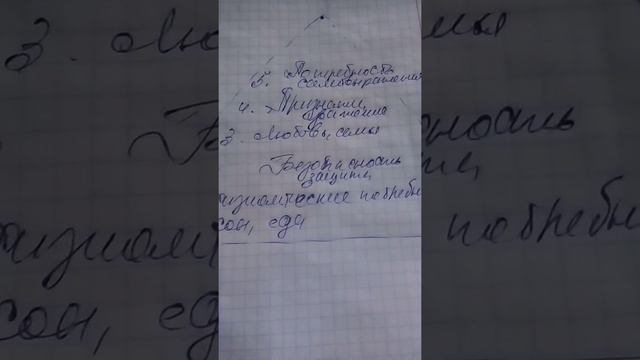 5. Потребность
самовыражения
4. Признание,
уважение
3. Любовь, семья
Безопасность
защита,
физиологические потребн
сон, еда